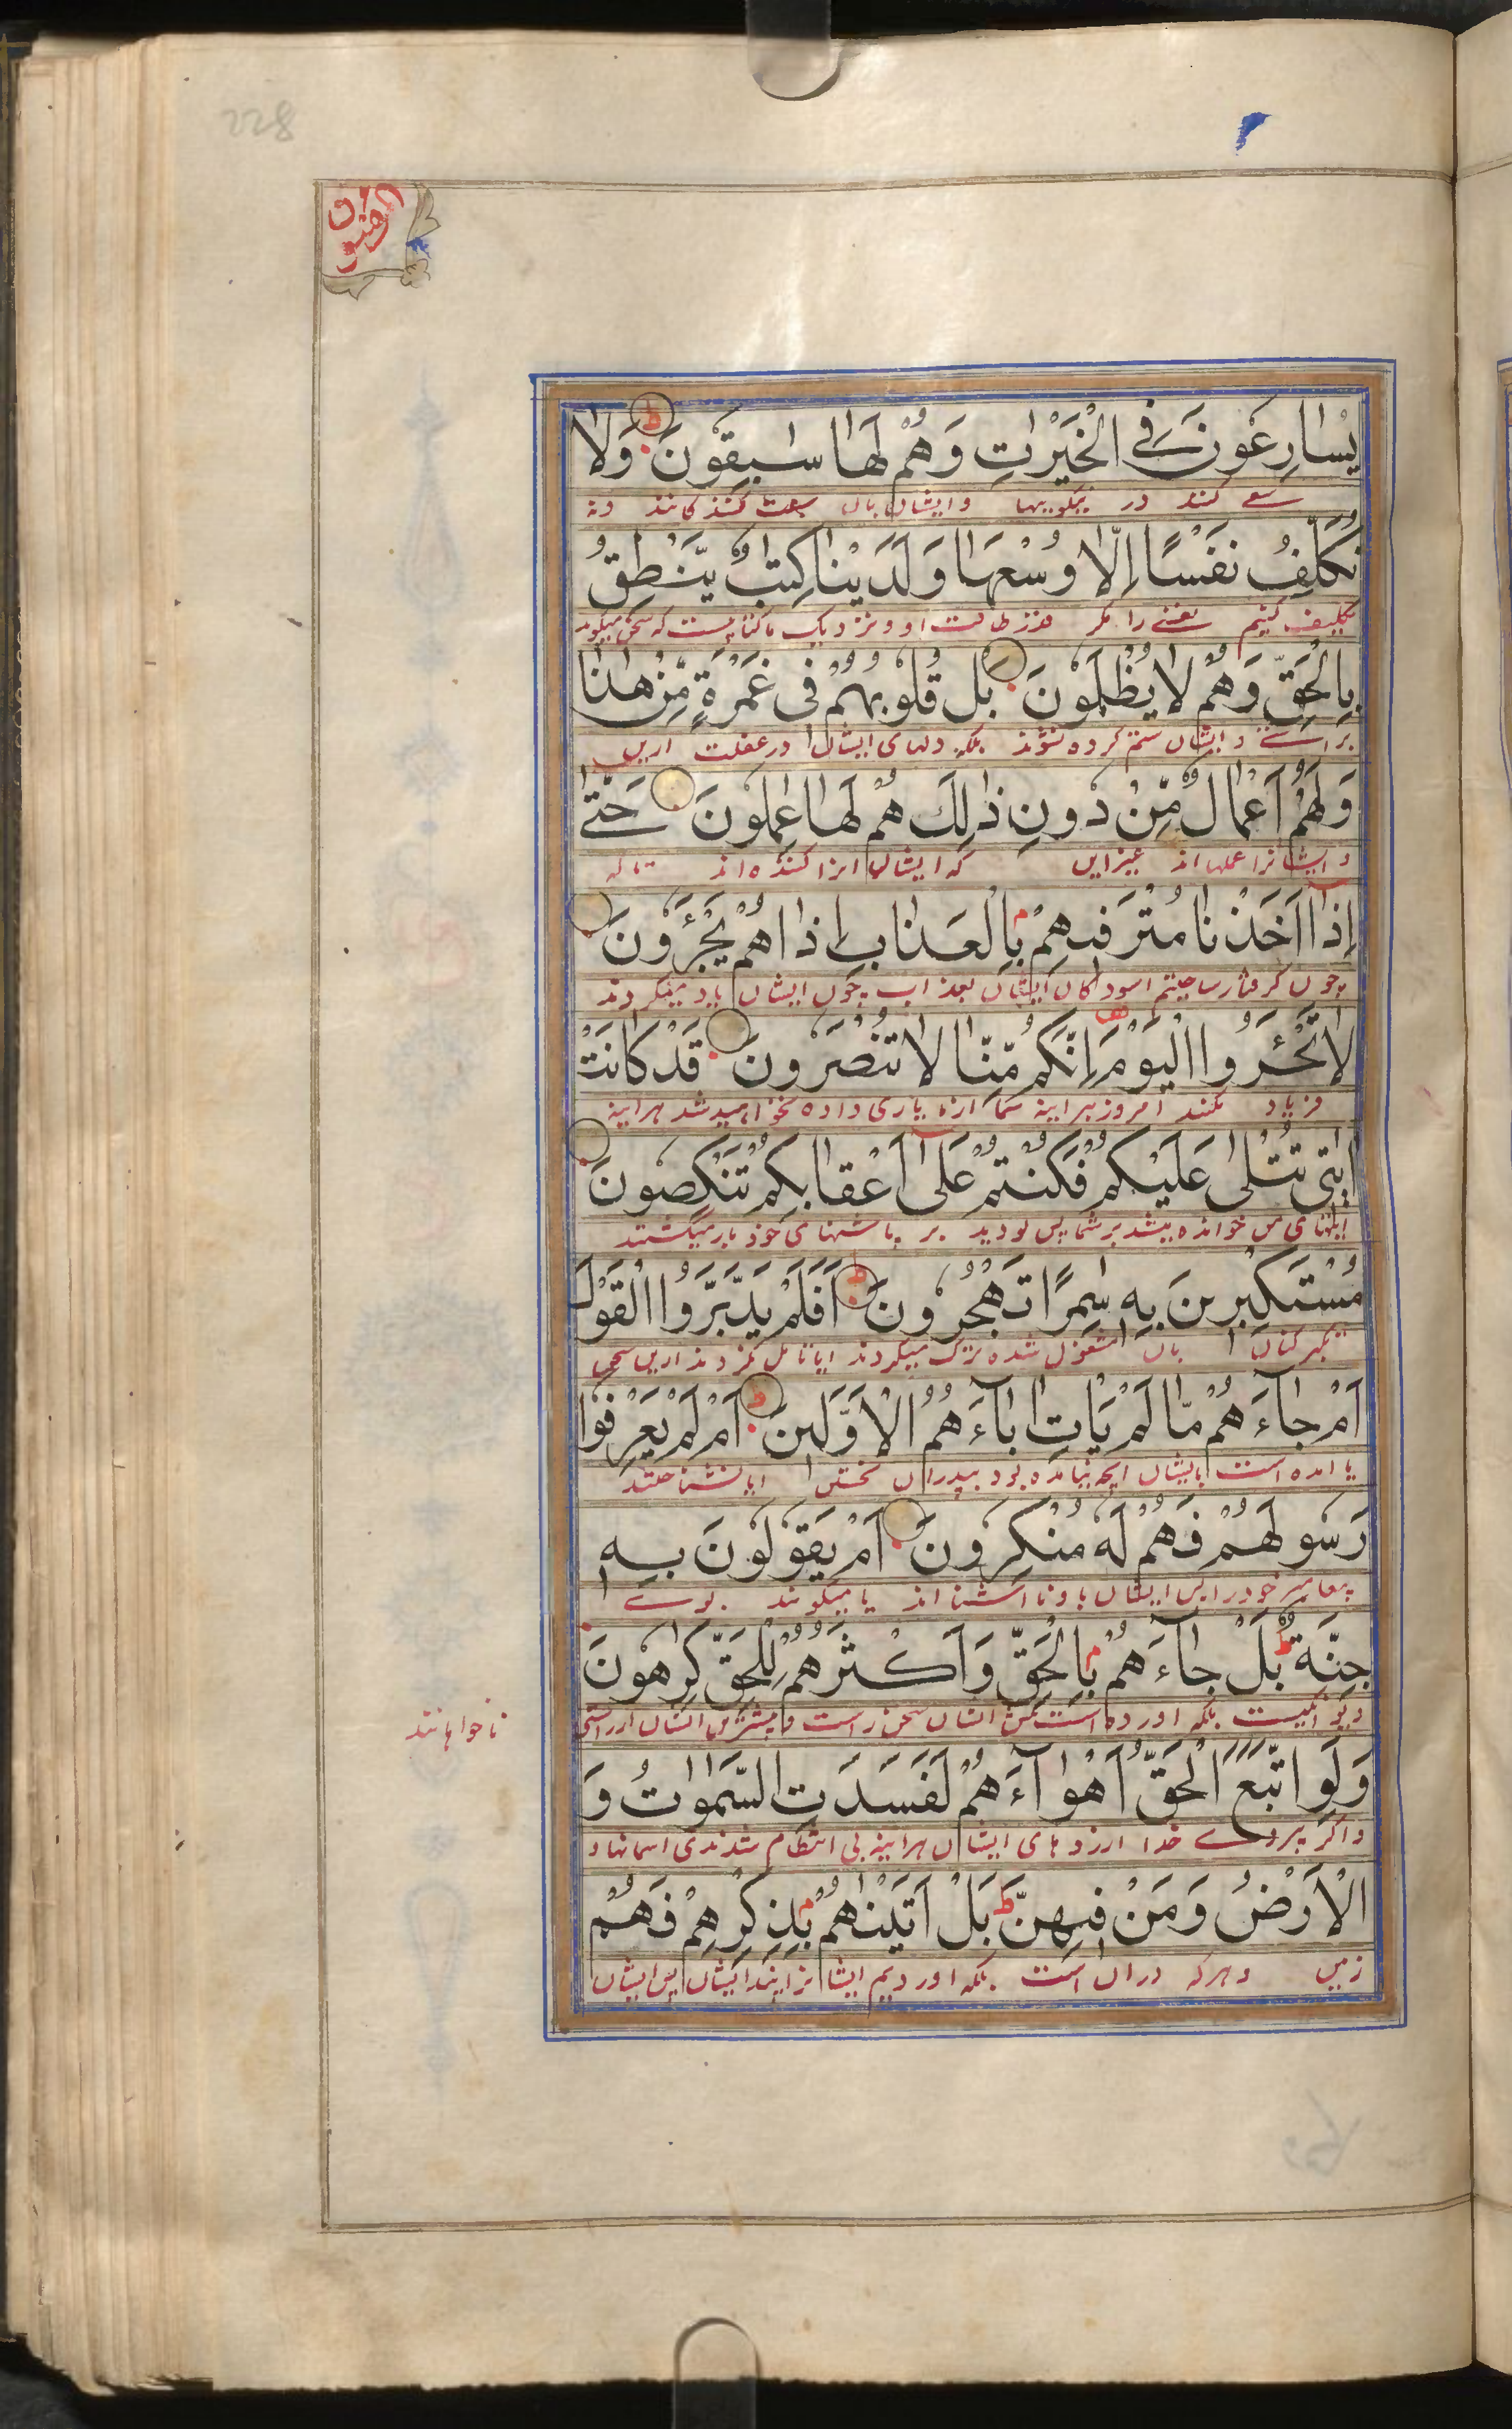 228
المؤمنون
يُسَارِعُونَ فِي الْخَيْرٰتِ وَهُمْ لَهَا سٰبِقُونَ ط وَلَا
سعے کنند در نیکوییها و ایشان بان سبقت کنندکانند و نه
نُكَلِّفُ نَفْسًا اِلَّا وُسْعَهَا وَلَدَيْنَا كِتٰبٌ يَّنْطِقُ
تکلیف کنیم نفسے را مکر قدر طاقت او و نزدیک ما کتابیست که سخن میکوید
بِالْحَقِّ وَهُمْ لَا يُظْلَمُونَ بَلْ قُلُوبُهُمْ فِي غَمْرَةٍ مِّنْ هٰذَا
براستے و ایشان ستم کرده نشوند بلکه دلهای ایشان در غفلت از این
وَلَهُمْ اَعْمَالٌ مِّنْ دُونِ ذٰلِكَ هُمْ لَهَا عٰمِلُونَ حَتّٰى
و ایشانرا عملها اند غیر این که ایشان انرا کننده اند تا که
اِذَا اَخَذْنَا مُتْرَفِيهِمْ بِالْعَذَابِ اِذَا هُمْ يَجْـَٔرُونَ
چون کرفتار ساختیم اسودکان ایشان بعذاب چون ایشان
لَا تَجْـَٔرُوا الْيَوْمَ اِنَّكُمْ مِّنَّا لَا تُنْصَرُونَ قَدْ كَانَتْ
فریاد مکنید امروز هر اینه شما از ما یاری داده نخواهید شد هر اینه
اٰيٰتِي تُتْلٰى عَلَيْكُمْ فَكُنْتُمْ عَلٰٓى اَعْقَابِكُمْ تَنْكِصُونَ
ایتهای من خوانده میشد بر شما پس بودید بر پاشنهای خود باز میکشتید
مُسْتَكْبِرِينَ بِهٖ سٰمِرًا تَهْجُرُونَ ط اَفَلَمْ يَدَّبَّرُوا الْقَوْلَ
تکبر کنان بان مشغول شده ترک میکردند ایا تامل نکردند در این سخن
اَمْ جَآءَهُمْ مَّا لَمْ يَاْتِ اٰبَآءَهُمُ الْاَوَّلِينَ ط اَمْ لَمْ يَعْرِفُوا
یا امده است بایشان انچه نیامده بود بپدران نخستین ایا نشناختند
رَسُولَهُمْ فَهُمْ لَهُ مُنْكِرُونَ اَمْ يَقُولُونَ بِهٖ
پیغامبر خود را پس ایشان باو نا اشنا اند یا میکویند بوے
جِنَّةٌ ط بَلْ جَآءَهُمْ بِالْحَقِّ وَاَكْثَرُهُمْ لِلْحَقِّ كٰرِهُونَ
دیوانکیست بلکه اورده است ایشان سخن راست و بیشترین ایشان راستی
ناخواهانند
وَلَوِ اتَّبَعَ الْحَقُّ اَهْوَآءَهُمْ لَفَسَدَتِ السَّمٰوٰتُ وَ
و اکر پیروے خدا ارزوهای ایشان هر اینه بی انتظام شدندی اسمانها و
الْاَرْضُ وَمَنْ فِيهِنَّ ط بَلْ اَتَيْنٰهُمْ بِذِكْرِهِمْ فَهُمْ
زمین و هر که در ان است بلکه اوردیم ایشانرا پند ایشان پس ایشان